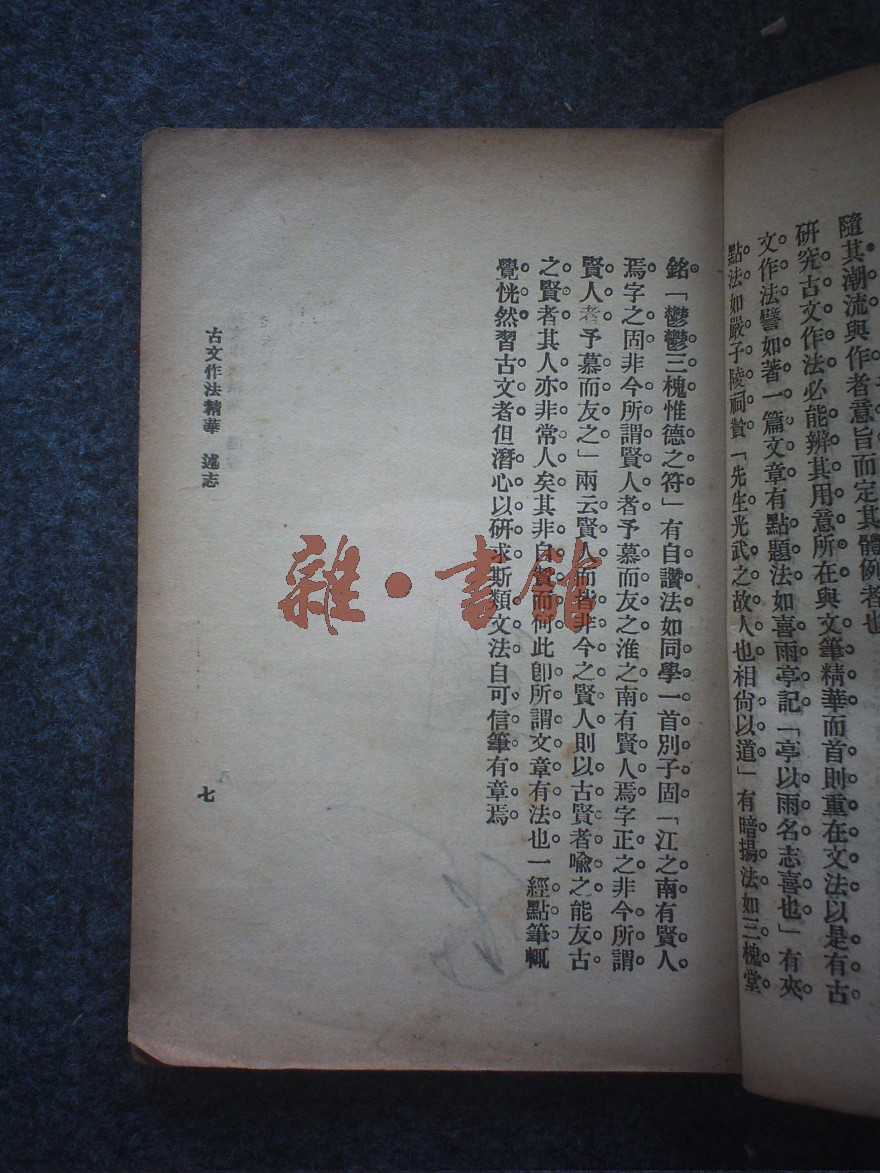 隨其潮流與作者意旨而定其體例者也
研究古文作法必能辨其用意所在與文筆精華而首則重在文法以是有古
文作法譬如著一篇文章有點題法如喜雨亭記「亭以雨名志喜也」有夾
點法如嚴子陵祠贊「先生光武之故人也相尙以道」有暗揚法如三槐堂
銘「鬱鬱三槐惟德之符」有自讚法如同學一首別子固「江之南有賢人
焉字之固非今所謂賢人者予慕而友之淮之南有賢人焉字正之非今所謂
賢人者予慕而友之」兩云賢人而皆非今之賢人則以古賢者喩之能友古
之賢者其人亦非常人矣其非自贊而何此卽所謂文章有法也一經點筆輒
覺恍然習古文者但潛心以硏求斯類文法自可信筆有章焉
古文作法精華　述志
七
雜·書館